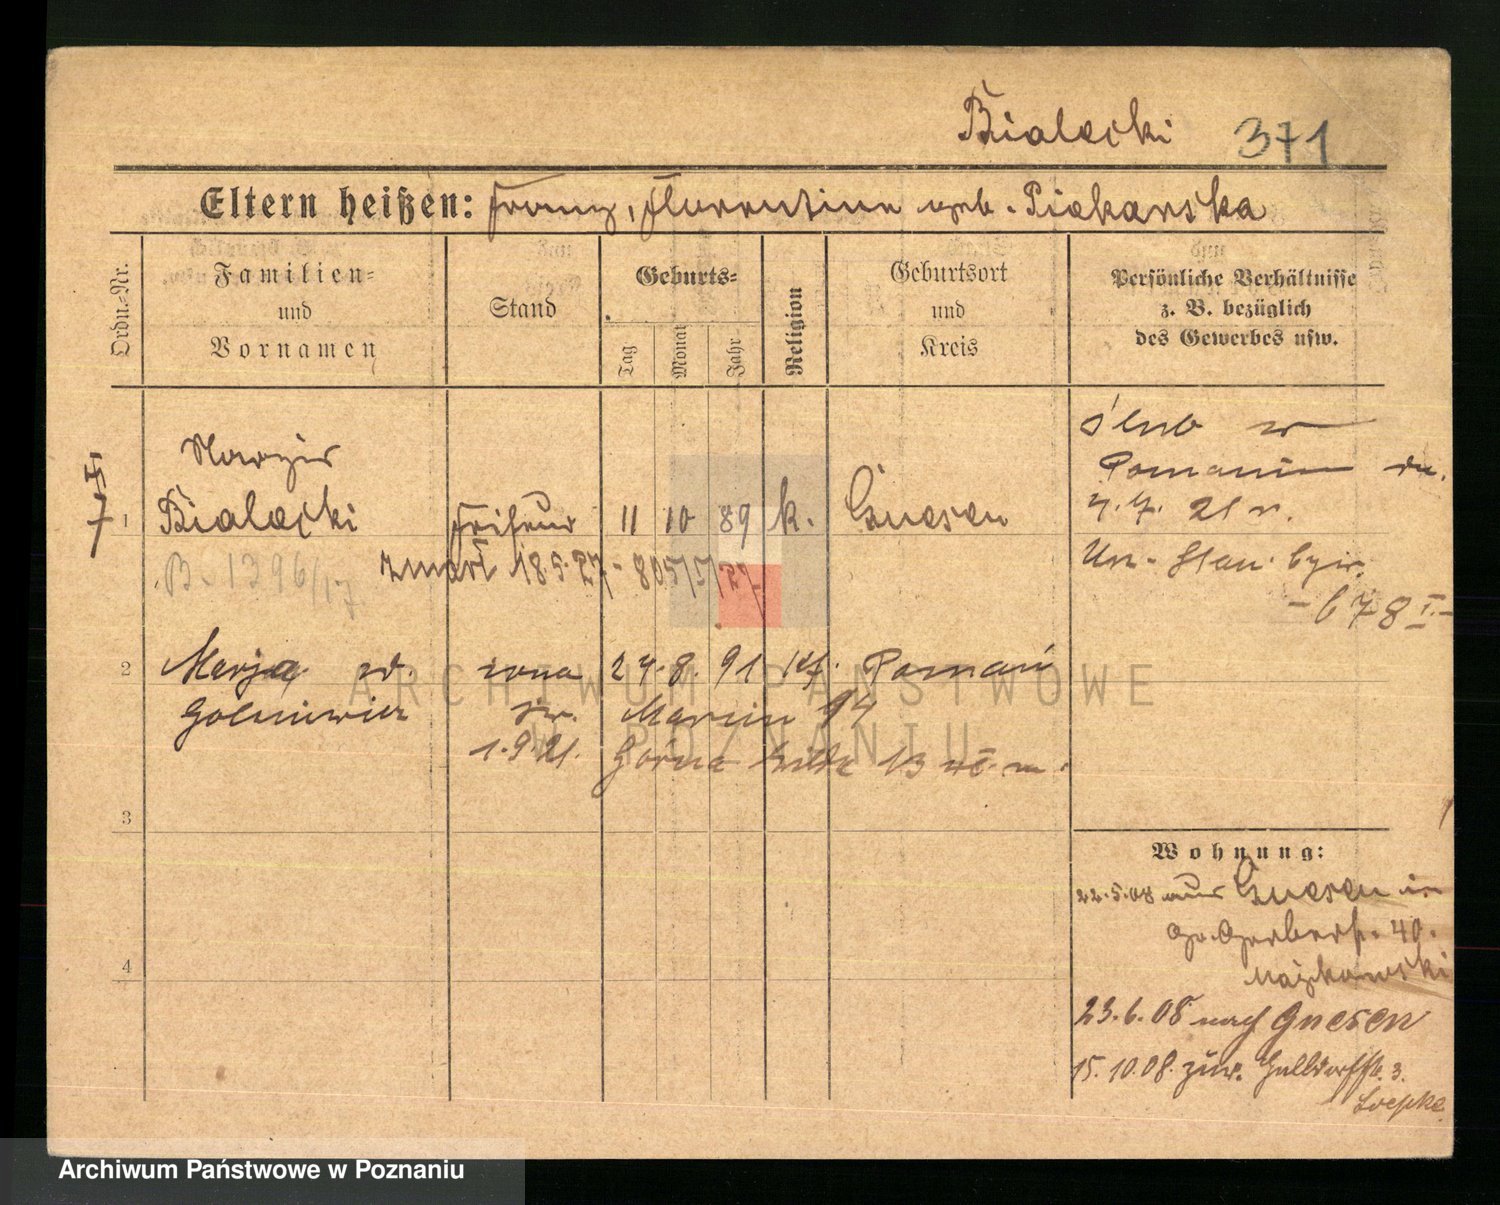 Bialecki 371
Eltern heißen: Franz, Florentine geb. Piekarska
Ordn.-Nr.
Familien-
und
Vornamen
Stand
Geburts-
Tag
Monat
Jahr
Religion
Geburtsort
und
Kreis
Persönliche Verhältnisse
z. B. bezüglich
des Gewerbes usw.
ślub w
Poznaniu dn.
21 r.
Urz. Stan. Cyw.
- 678 I. -
7
1
Bialecki Friseur 11 10 89 k. Gnesen
B. 1396/17 zmarł 18.5.27 - 805/5/27
2
Marja zd. żona 24. 8. 91 Kt. Poznań
Marcin 94
1.9.21. Górna Wilda 13 m.
3
4
Wohnung:
22.5.08 aus Gnesen in
Gr. Gerberstr. 40.
23.6.08 nach Gnesen
15.10.08. zur. 3.
Loepke
ARCHIWUM PAŃSTWOWE
W POZNANIU
Archiwum Państwowe w Poznaniu